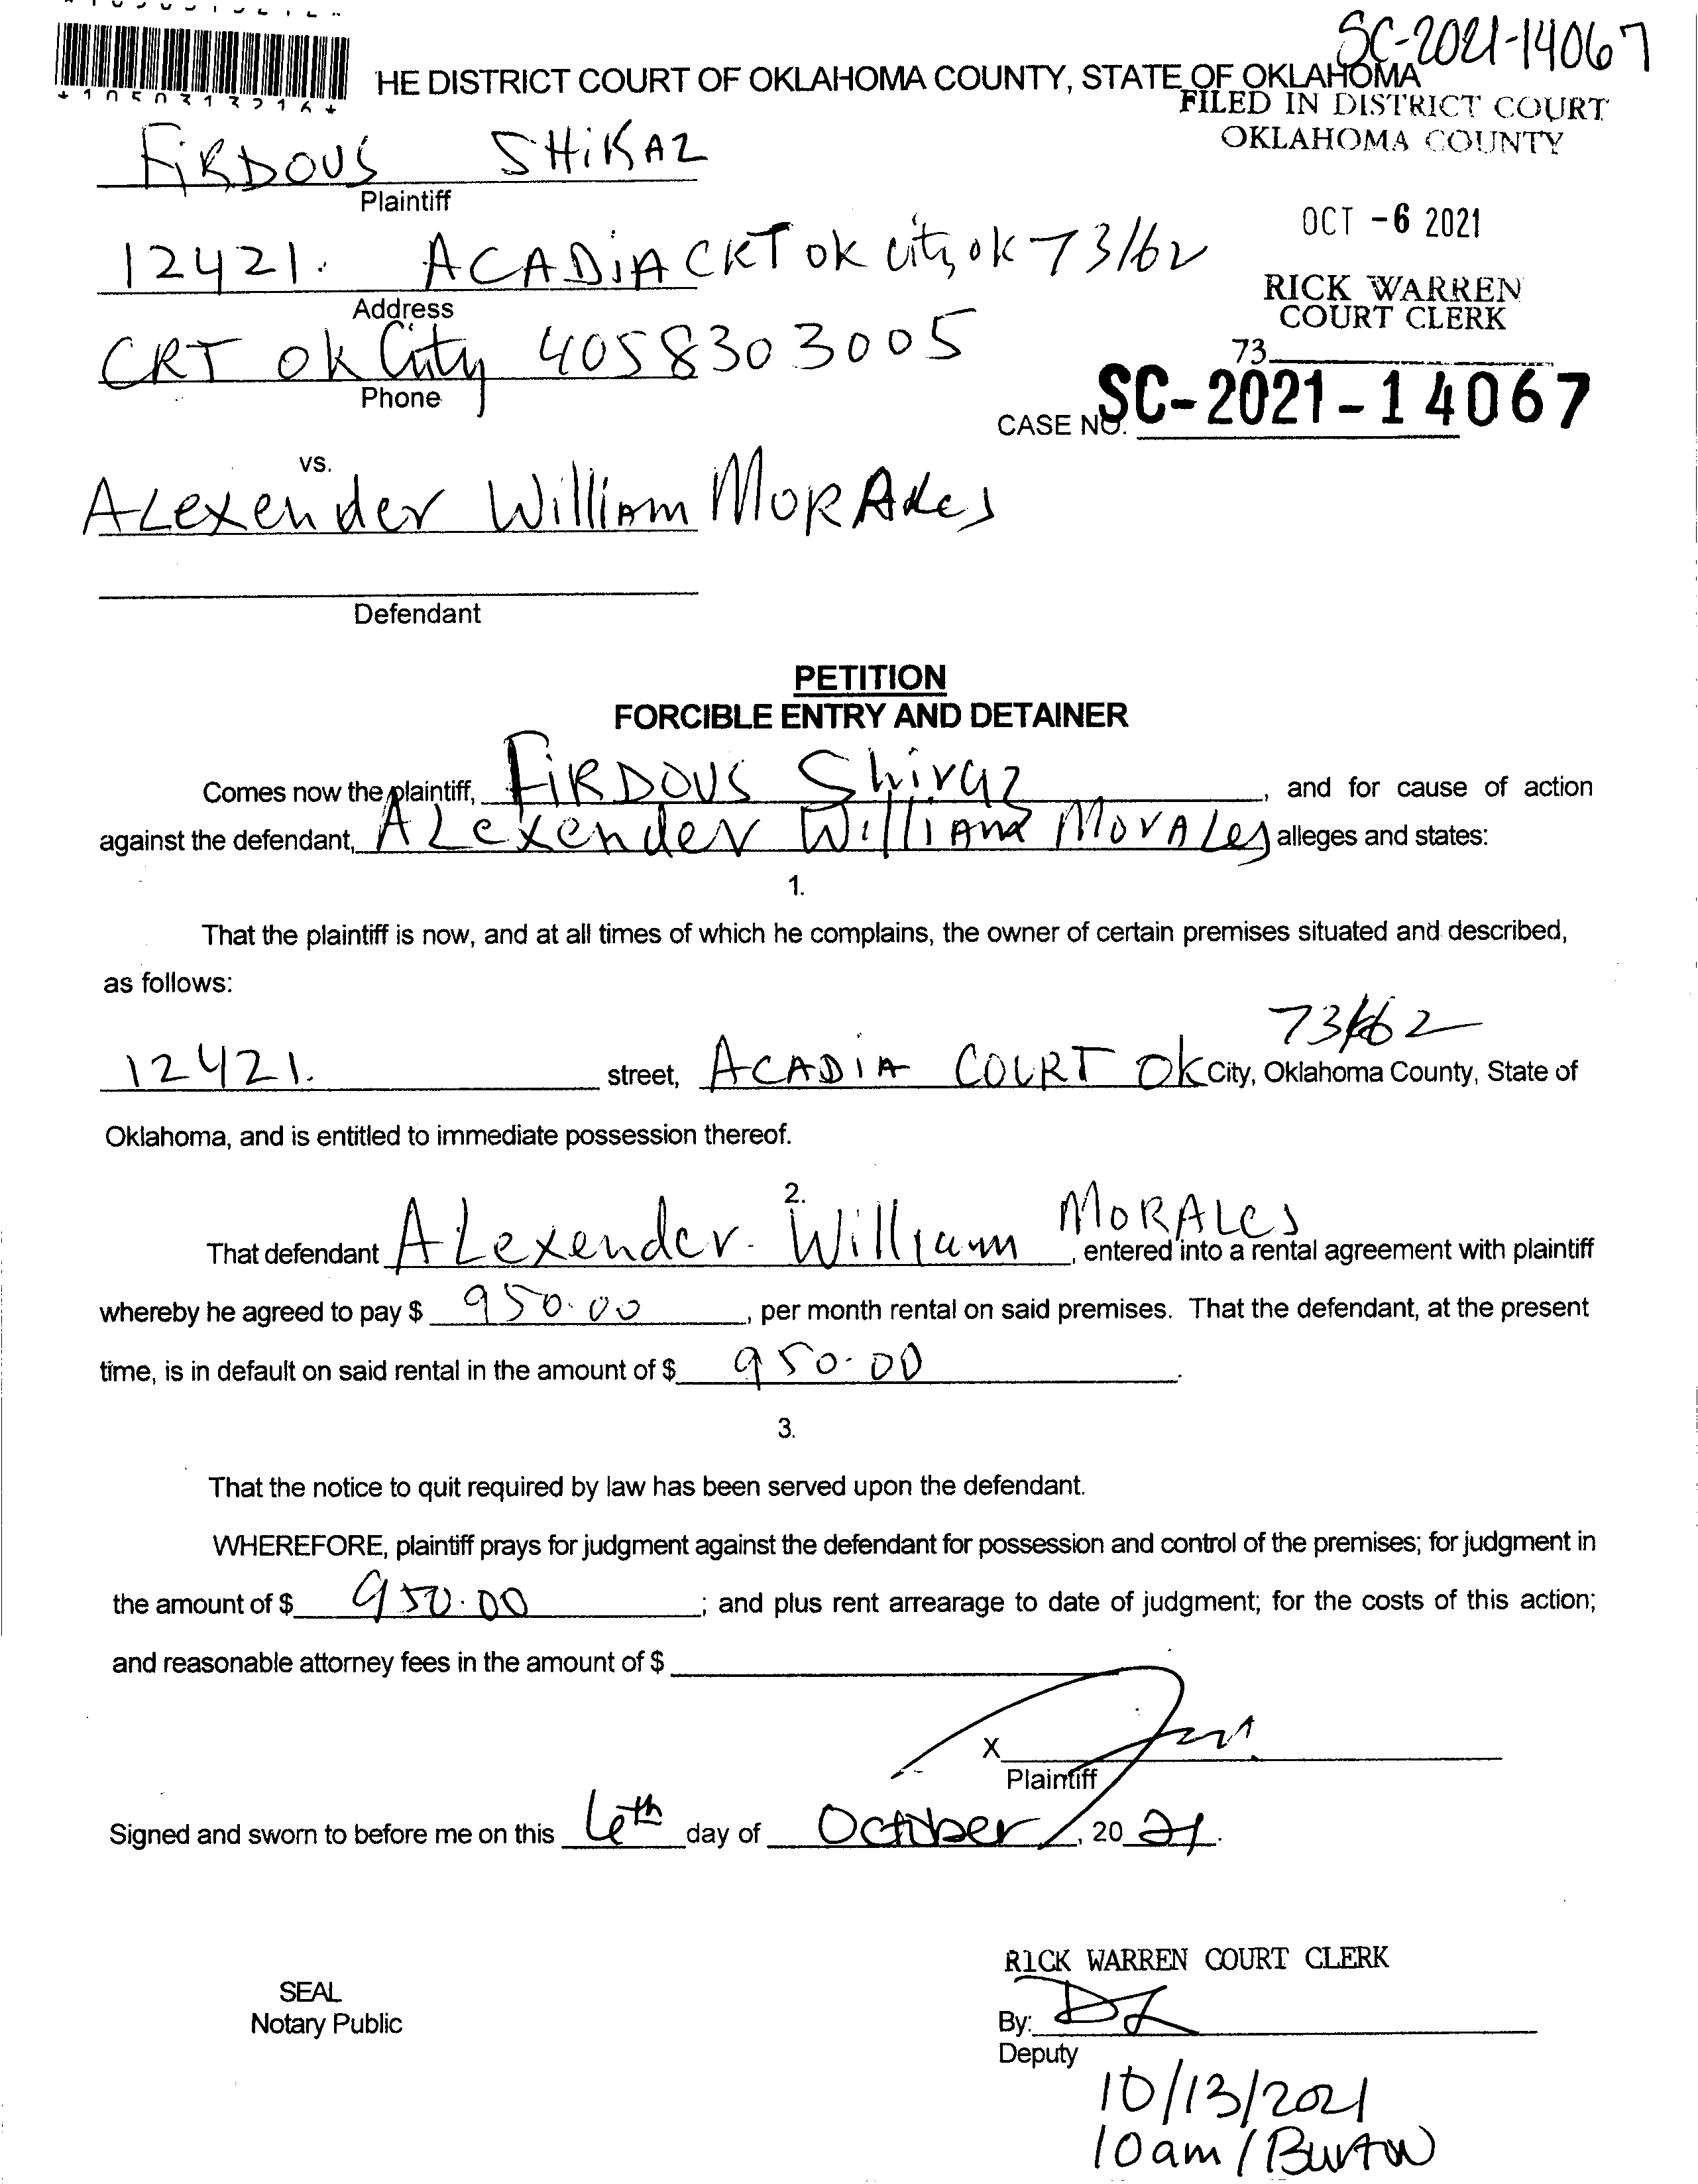 SC-2021-14067
HE DISTRICT COURT OF OKLAHOMA COUNTY, STATE OF OKLAHOMA
FILED IN DISTRICT COURT
OKLAHOMA COUNTY
FIRDOUS SHIRAZ
Plaintiff
OCT -6 2021
12421. ACADIA CRT OK City, OK 73162
Address
RICK WARREN
COURT CLERK
CRT OK City 4058303005
Phone
73
CASE NO. SC-2021-14067
vs.
ALexender William MORALes
Defendant
PETITION
FORCIBLE ENTRY AND DETAINER
Comes now the plaintiff, FIRDOUS Shiraz, and for cause of action
against the defendant, ALexender William MorALes alleges and states:
1.
That the plaintiff is now, and at all times of which he complains, the owner of certain premises situated and described,
as follows:
73162
12421. street, ACADIA COURT OK City, Oklahoma County, State of
Oklahoma, and is entitled to immediate possession thereof.
2.
That defendant ALexender. William MORALES, entered into a rental agreement with plaintiff
whereby he agreed to pay $ 950.00, per month rental on said premises. That the defendant, at the present
time, is in default on said rental in the amount of $ 950.00.
3.
That the notice to quit required by law has been served upon the defendant.
WHEREFORE, plaintiff prays for judgment against the defendant for possession and control of the premises; for judgment in
the amount of $ 950.00; and plus rent arrearage to date of judgment; for the costs of this action;
and reasonable attorney fees in the amount of $
X
Plaintiff
Signed and sworn to before me on this 6th day of October, 2021.
RICK WARREN COURT CLERK
SEAL
Notary Public
By:
Deputy
10/13/2021
10am / Burton